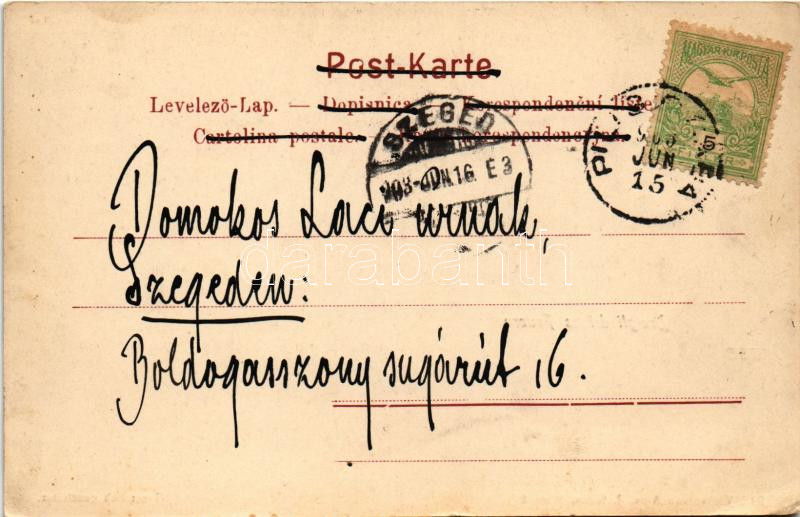 Post-Karte
Levelező-Lap. — Dopisnica.
Cartolina postale.
MAGYAR KIR. POSTA
5
SZEGED
903 JUN. 16 E 3
903
JUN
15
Domokos Laci urnak,
Szegeden:
Boldogasszony sugárút 16.
darabanth